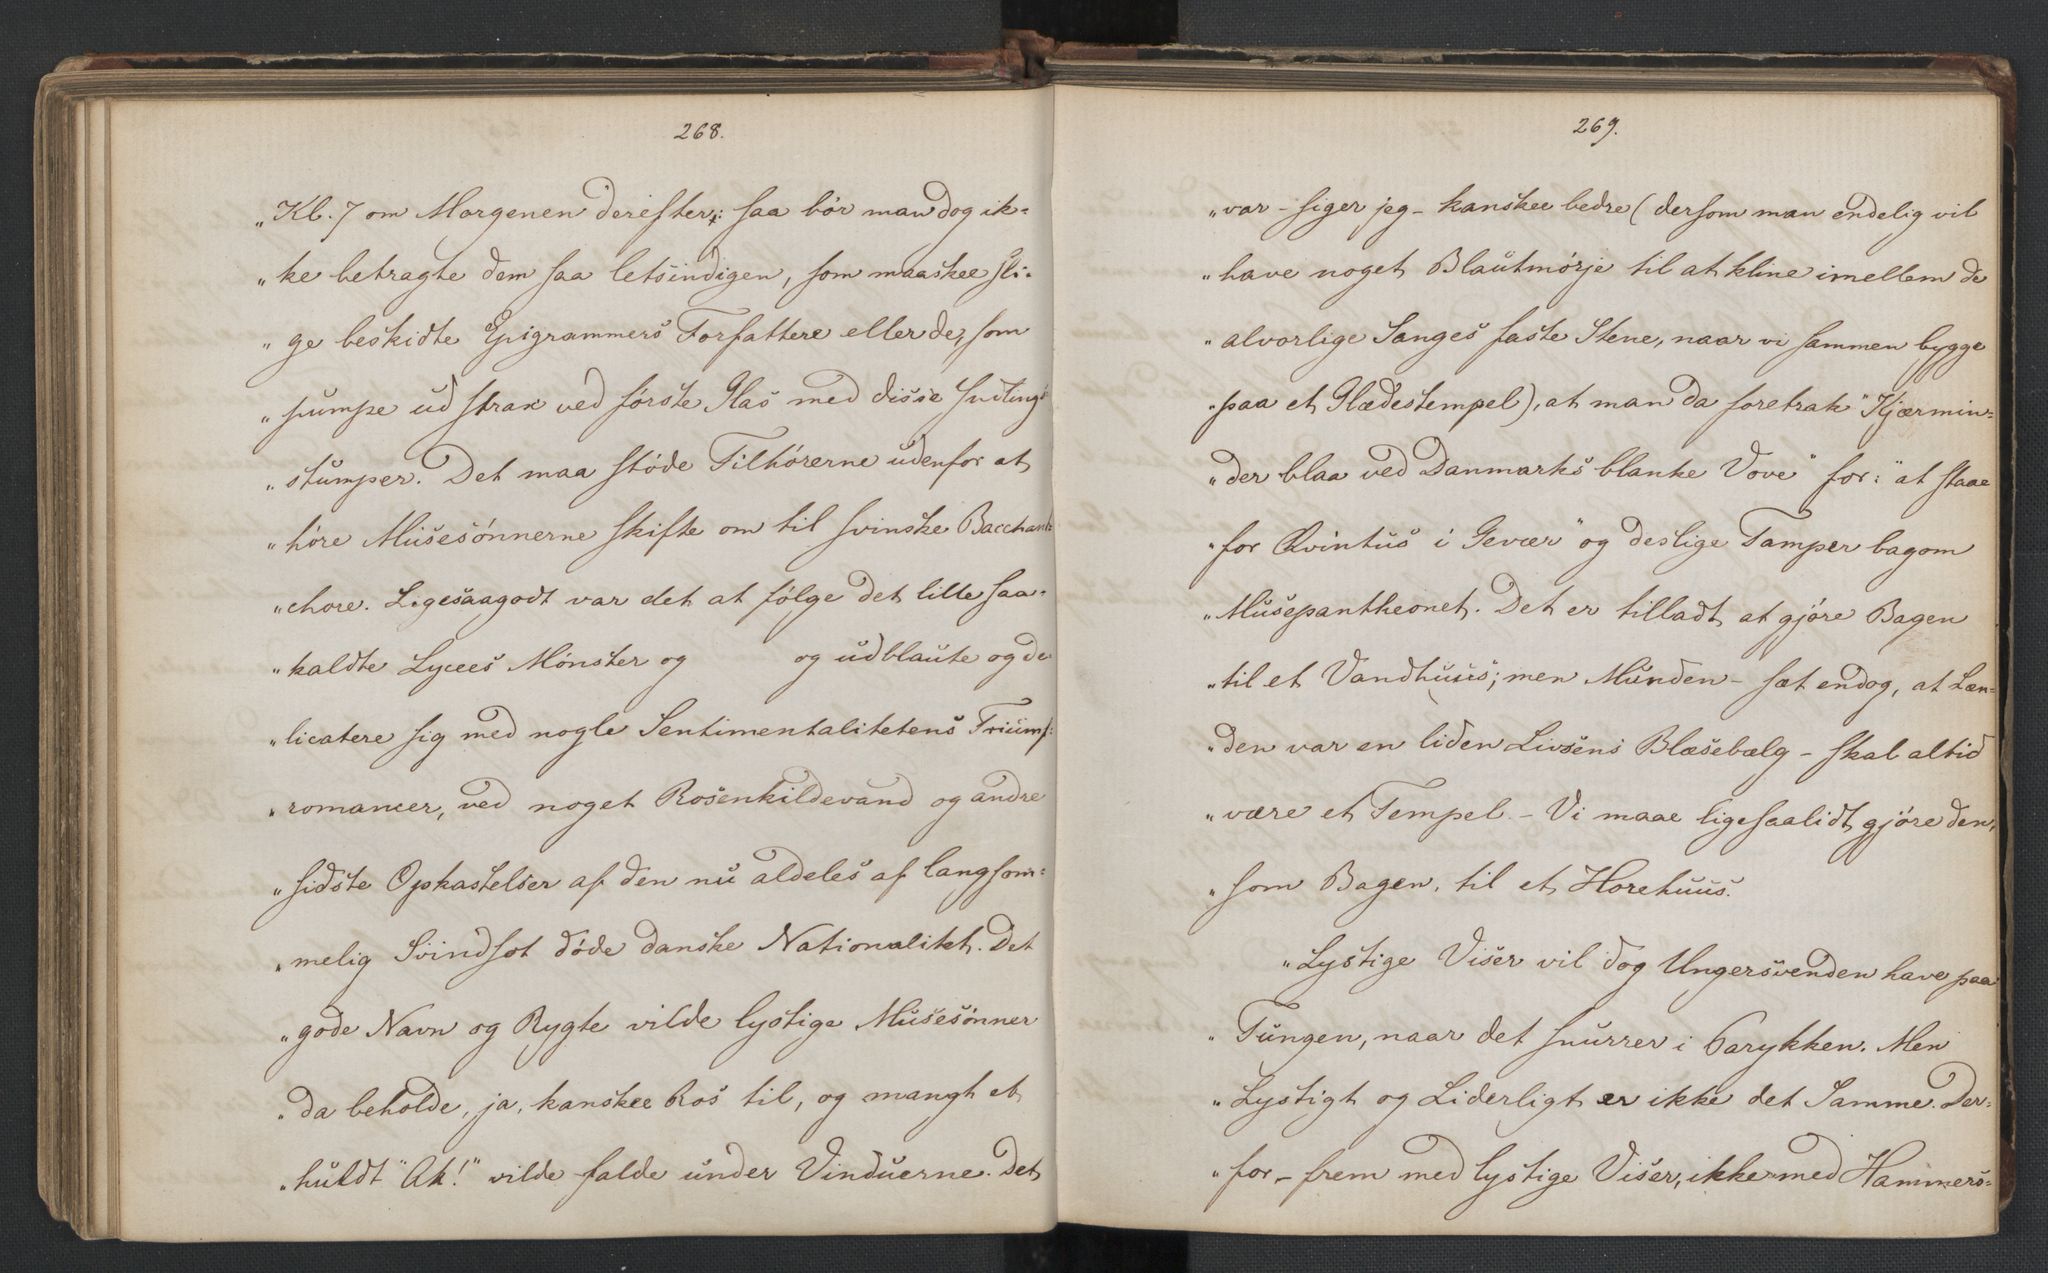 268.
„Kl. 7 om Morgenen derefter; saa bör man dog ik-
„ke betragte dem saa letsindigen, som maaskee sli-
„ge beskidte Epigrammers Forfattere eller de, som
„pumpe ud strax ved förste Glas med disse Sudlings
„stumper. Det maa støde Tilhörerne udenfor at
„høre Musesønnerne skifte om til svinske Bacchant-
„chore. Ligesaagodt var det at fölge det lille saa-
„kaldte Lycees Mønster og og udblaute og de-
„licatere sig med nogle Sentimentalitetens Triumf-
„romancer, ved noget Rosenkildevand og andre
„sidste Opkastelser af den nu aldeles af langsom-
„melig Svindsot døde danske Nationalitet. Det
„gode Navn og Rygte vilde lystige Musesønner
„da beholde, ja, kanskee Ros til, og mangt et
„huldt "Ak!" vilde falde under Vinduerne. Det
269.
„var – siger jeg – kanskee bedre (dersom man endelig vil
„have noget Blautmørje til at kline imellem de
„alvorlige Sanges faste Stene, naar vi sammen bygge
„paa et Glædestempel), at man da foretrak "Kjærmin-
„der blaa ved Danmarks blanke Vove" for: "at staae
„for Qvintus i Gevær" og deslige Tamper bagom
„Musepantheonet. Det er tilladt at gjøre Bagen
„til et Vandhuus; men Munden – sæt endog, at Læn-
„den var en liden Livsens Blæsebælg – skal altid
„være et Tempel. – Vi maae ligesaalidt gjøre den,
„som Bagen, til et Horehuus.
„Lystige Viser vil dog Ungersvenden have paa
„Tungen, naar det snurrer i Parykken. Men
„Lystigt og Liderligt er ikke det Samme. Der-
„for – frem med lystige Viser, ikke med Hammers-